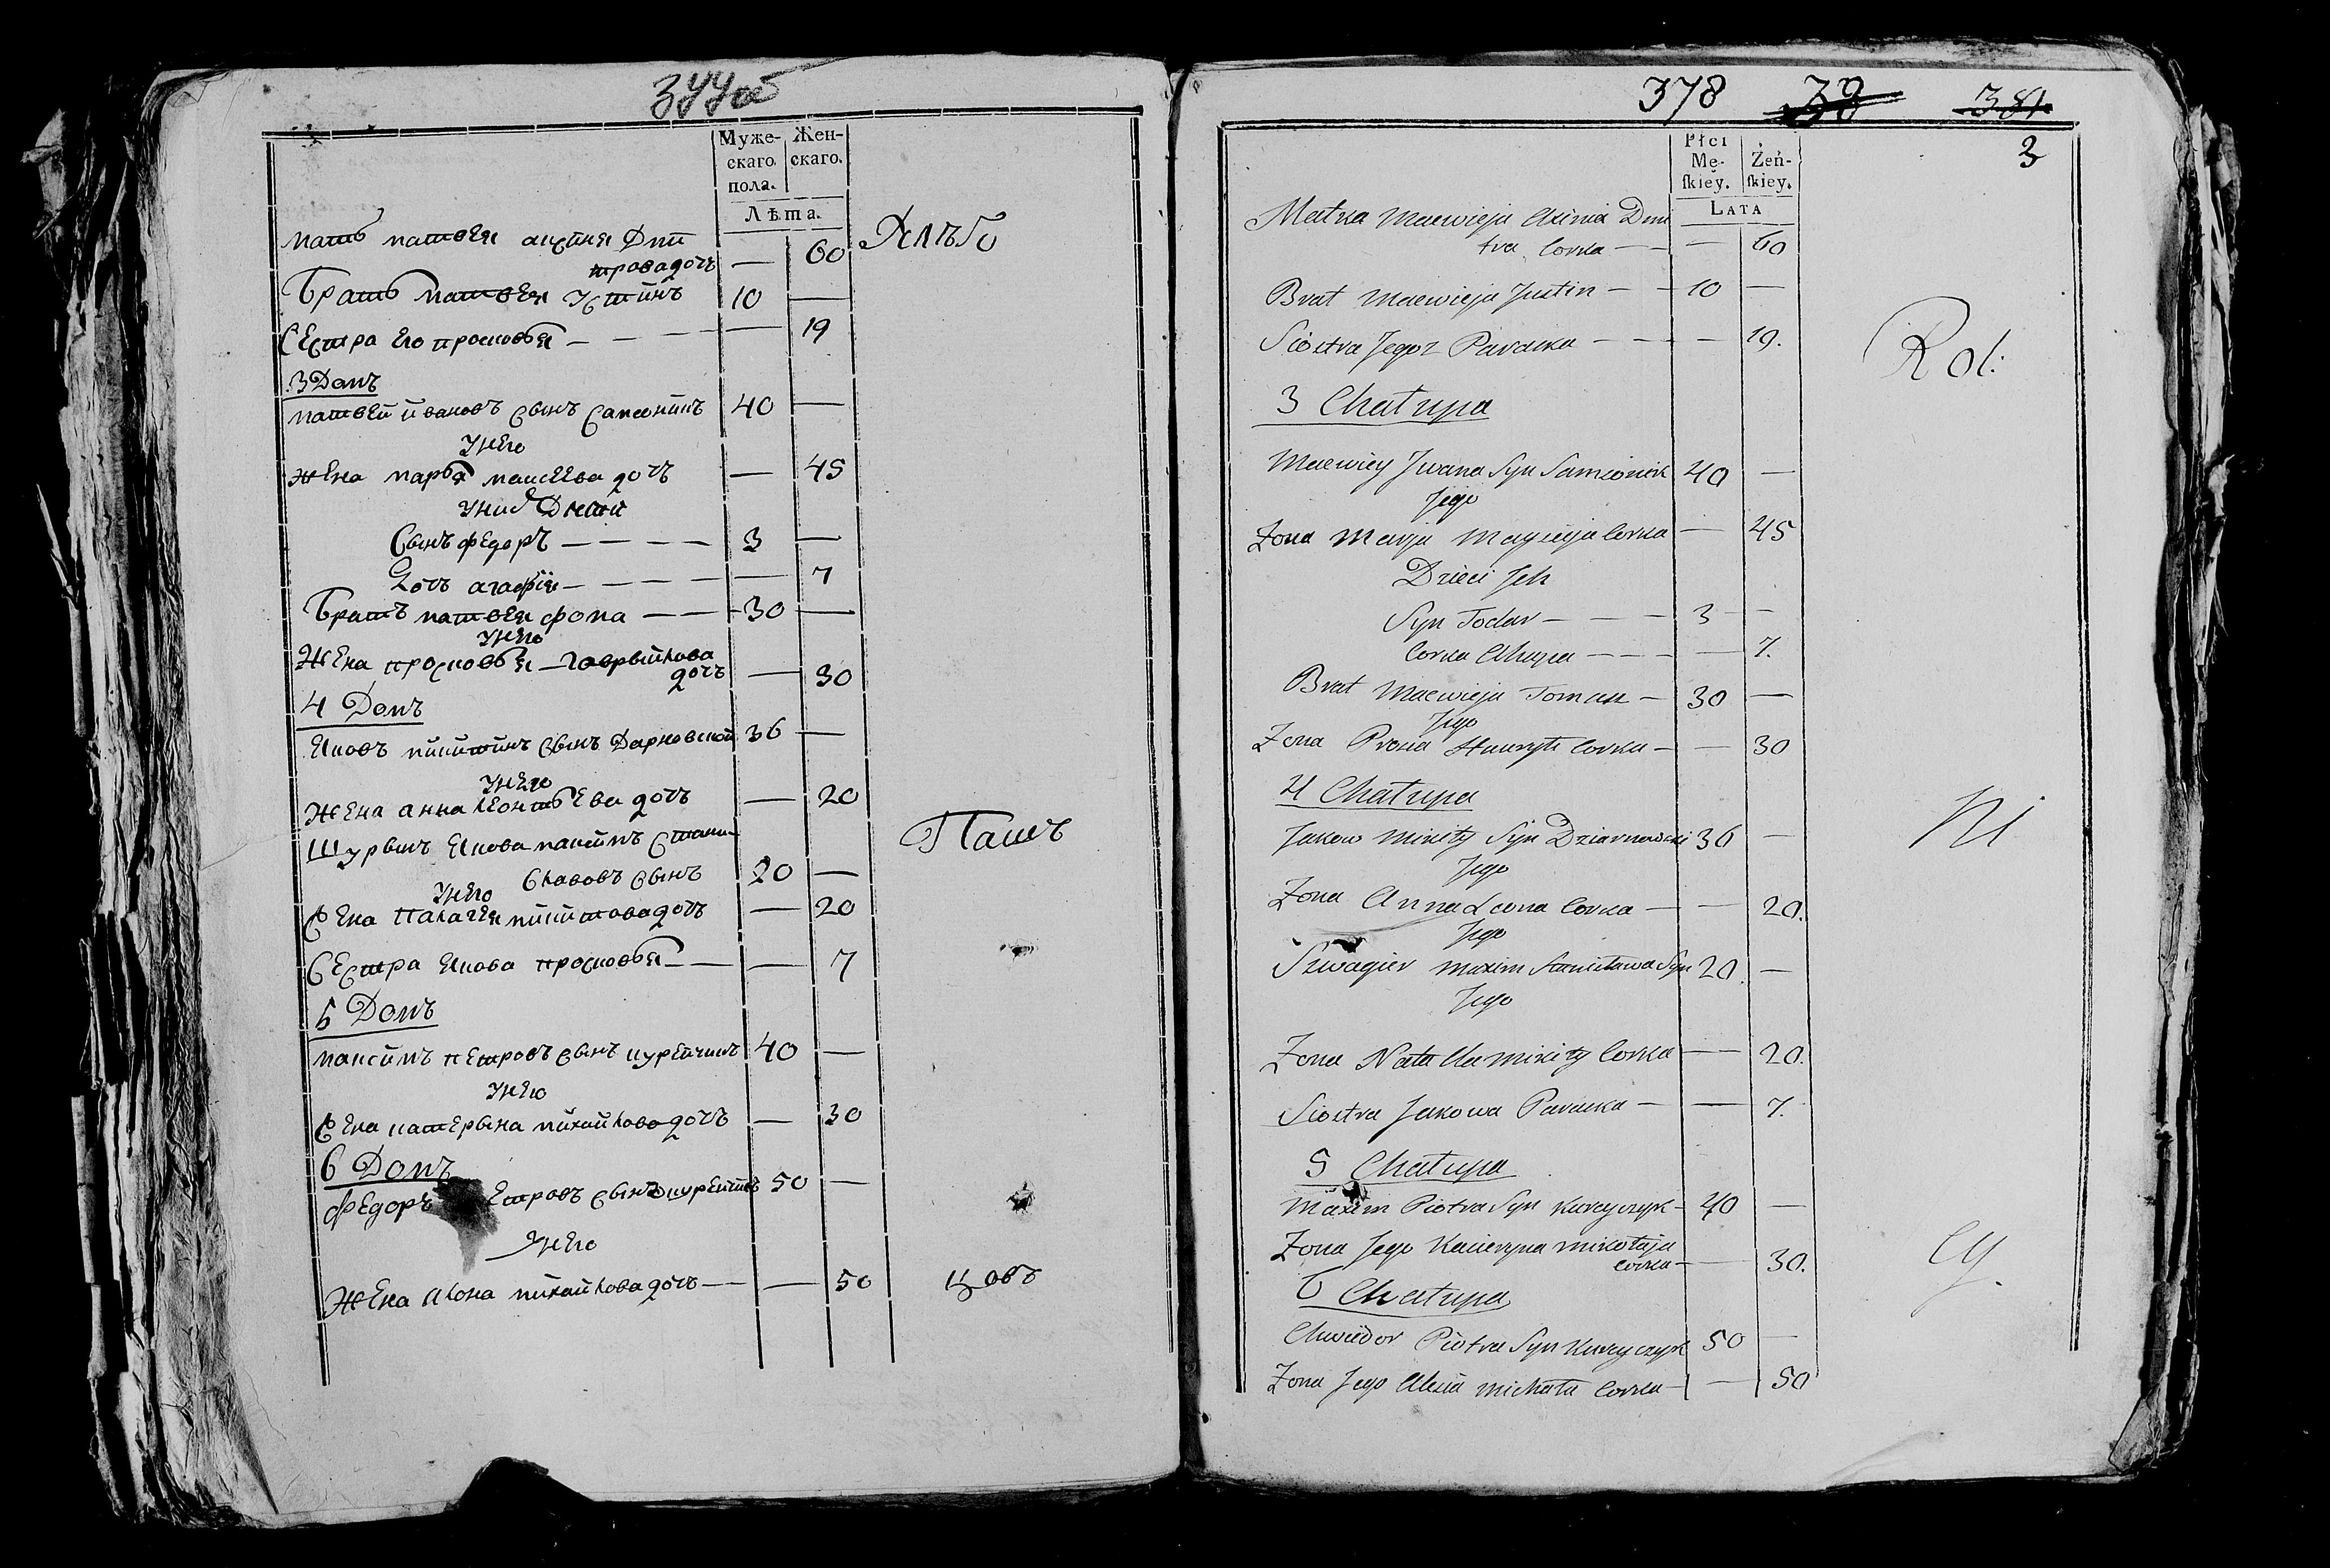 377 об
Муже-
скаго
пола.
Жен-
скаго.
Лѣта.
мать матвея аксиня Дми
трова дочь — 60
Хлѣбо
Братъ матвея Устинъ 10 —
Сестра его просковья — — — — 19
3 Домъ
матвей ивановъ сынъ Самсоникъ 40 —
У него
жена марья моисеева дочь — 45
У них Дети
Сынъ федоръ — — — — 3 —
Дочь агафия — — — — — 7
Братъ матвея фома — — 30 —
У него
Жена просковья — гаврылова
дочь — 30
4 Домъ
Яковъ микитинъ сынъ Дарновской 36 —
У него
жена анна леонтьева дочь — 20
Шурынъ Якова максимъ Стани
славовъ сынъ 20 —
Пашъ
У него
жена палагея микитова дочь — 20
Сестра Якова просковья — — — 7
5 Домъ
максимъ петровъ сынъ курейчикъ 40 —
У него
жена катерына михайлова дочь — 30
6 Домъ
федоръ етровъ сынъ курейчикъ 50 —
У него
Жена алона михайлова дочь — — 50
цовъ
378 39 381
3
Płci
Mę-
skiey.
Żeń-
skiey.
Lata
Matka Macwieja Axinia Dmi
tra Corka — — 60
Brat Macwieja Justin — — 10 —
Siostra Jegoz Paraska — — — — 19.
Rol:
3 Chałupa
Macwiey Jwana Syn Samsonik 40 —
Jego
Zona Marja Mayzieja Corka — 45
Dzieci Jch
Syn Todar — — — 3 —
Corka Ahapa — — — — 7.
Brat Macwieja Tomasz — 30 —
Jego
Zona Prosia Hauryła Corka — — 30
4 Chałupa
Jakow Mikity Syn Dziarnowski 36 —
Ni
Jego
Zona Anna Leona Corka — — 20.
Jego
Szwagier Maxim Stanisława Syn 20. —
Jego
Zona Natalla Mikity Corka — 20.
Siostra Jakowa Paraska — — 7.
5 Chałupa
Maxim Piotra Syn Kureyczyk — 40 —
Zona Jego Kacieryna Mikołaja
Corka — — 30.
cy.
6 Chałupa
Chwiedor Piotra Syn Kureyczyk 50 —
Zona Jego Alesia Michała Corka — — 50